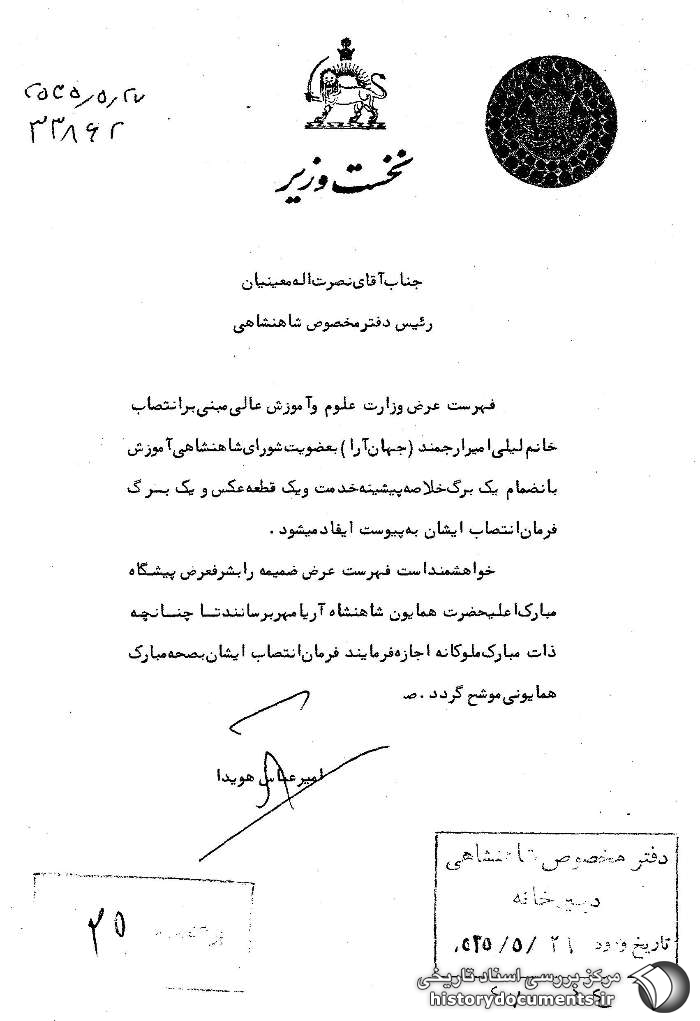 ۲۵۳۵/۵/۲۷
۳۳۸۶۲
نخست وزیر
جناب آقای نصرت اله معینیان
رئیس دفتر مخصوص شاهنشاهی
فهرست عرض وزارت علوم و آموزش عالی مبنی بر انتصاب
خانم لیلی امیرارجمند (جهان آرا) بعضویت شورای شاهنشاهی آموزش
بانضمام یک برگ خلاصه پیشینه خدمت و یک قطعه عکس و یک برگ
فرمان انتصاب ایشان به پیوست ایفاد میشود .
خواهشمند است فهرست عرض ضمیمه را بشرفعرض پیشگاه
مبارک اعلیحضرت همایون شاهنشاه آریامهر برسانند تا چنانچه
ذات مبارک ملوکانه اجازه فرمایند فرمان انتصاب ایشان بصحه مبارک
همایونی موشح گردد . ص
امیرعباس هویدا
دفتر مخصوص شاهنشاهی
دبیرخانه
تاریخ ورود
۳۵
مرکز بررسی اسناد تاریخی
historydocuments.ir